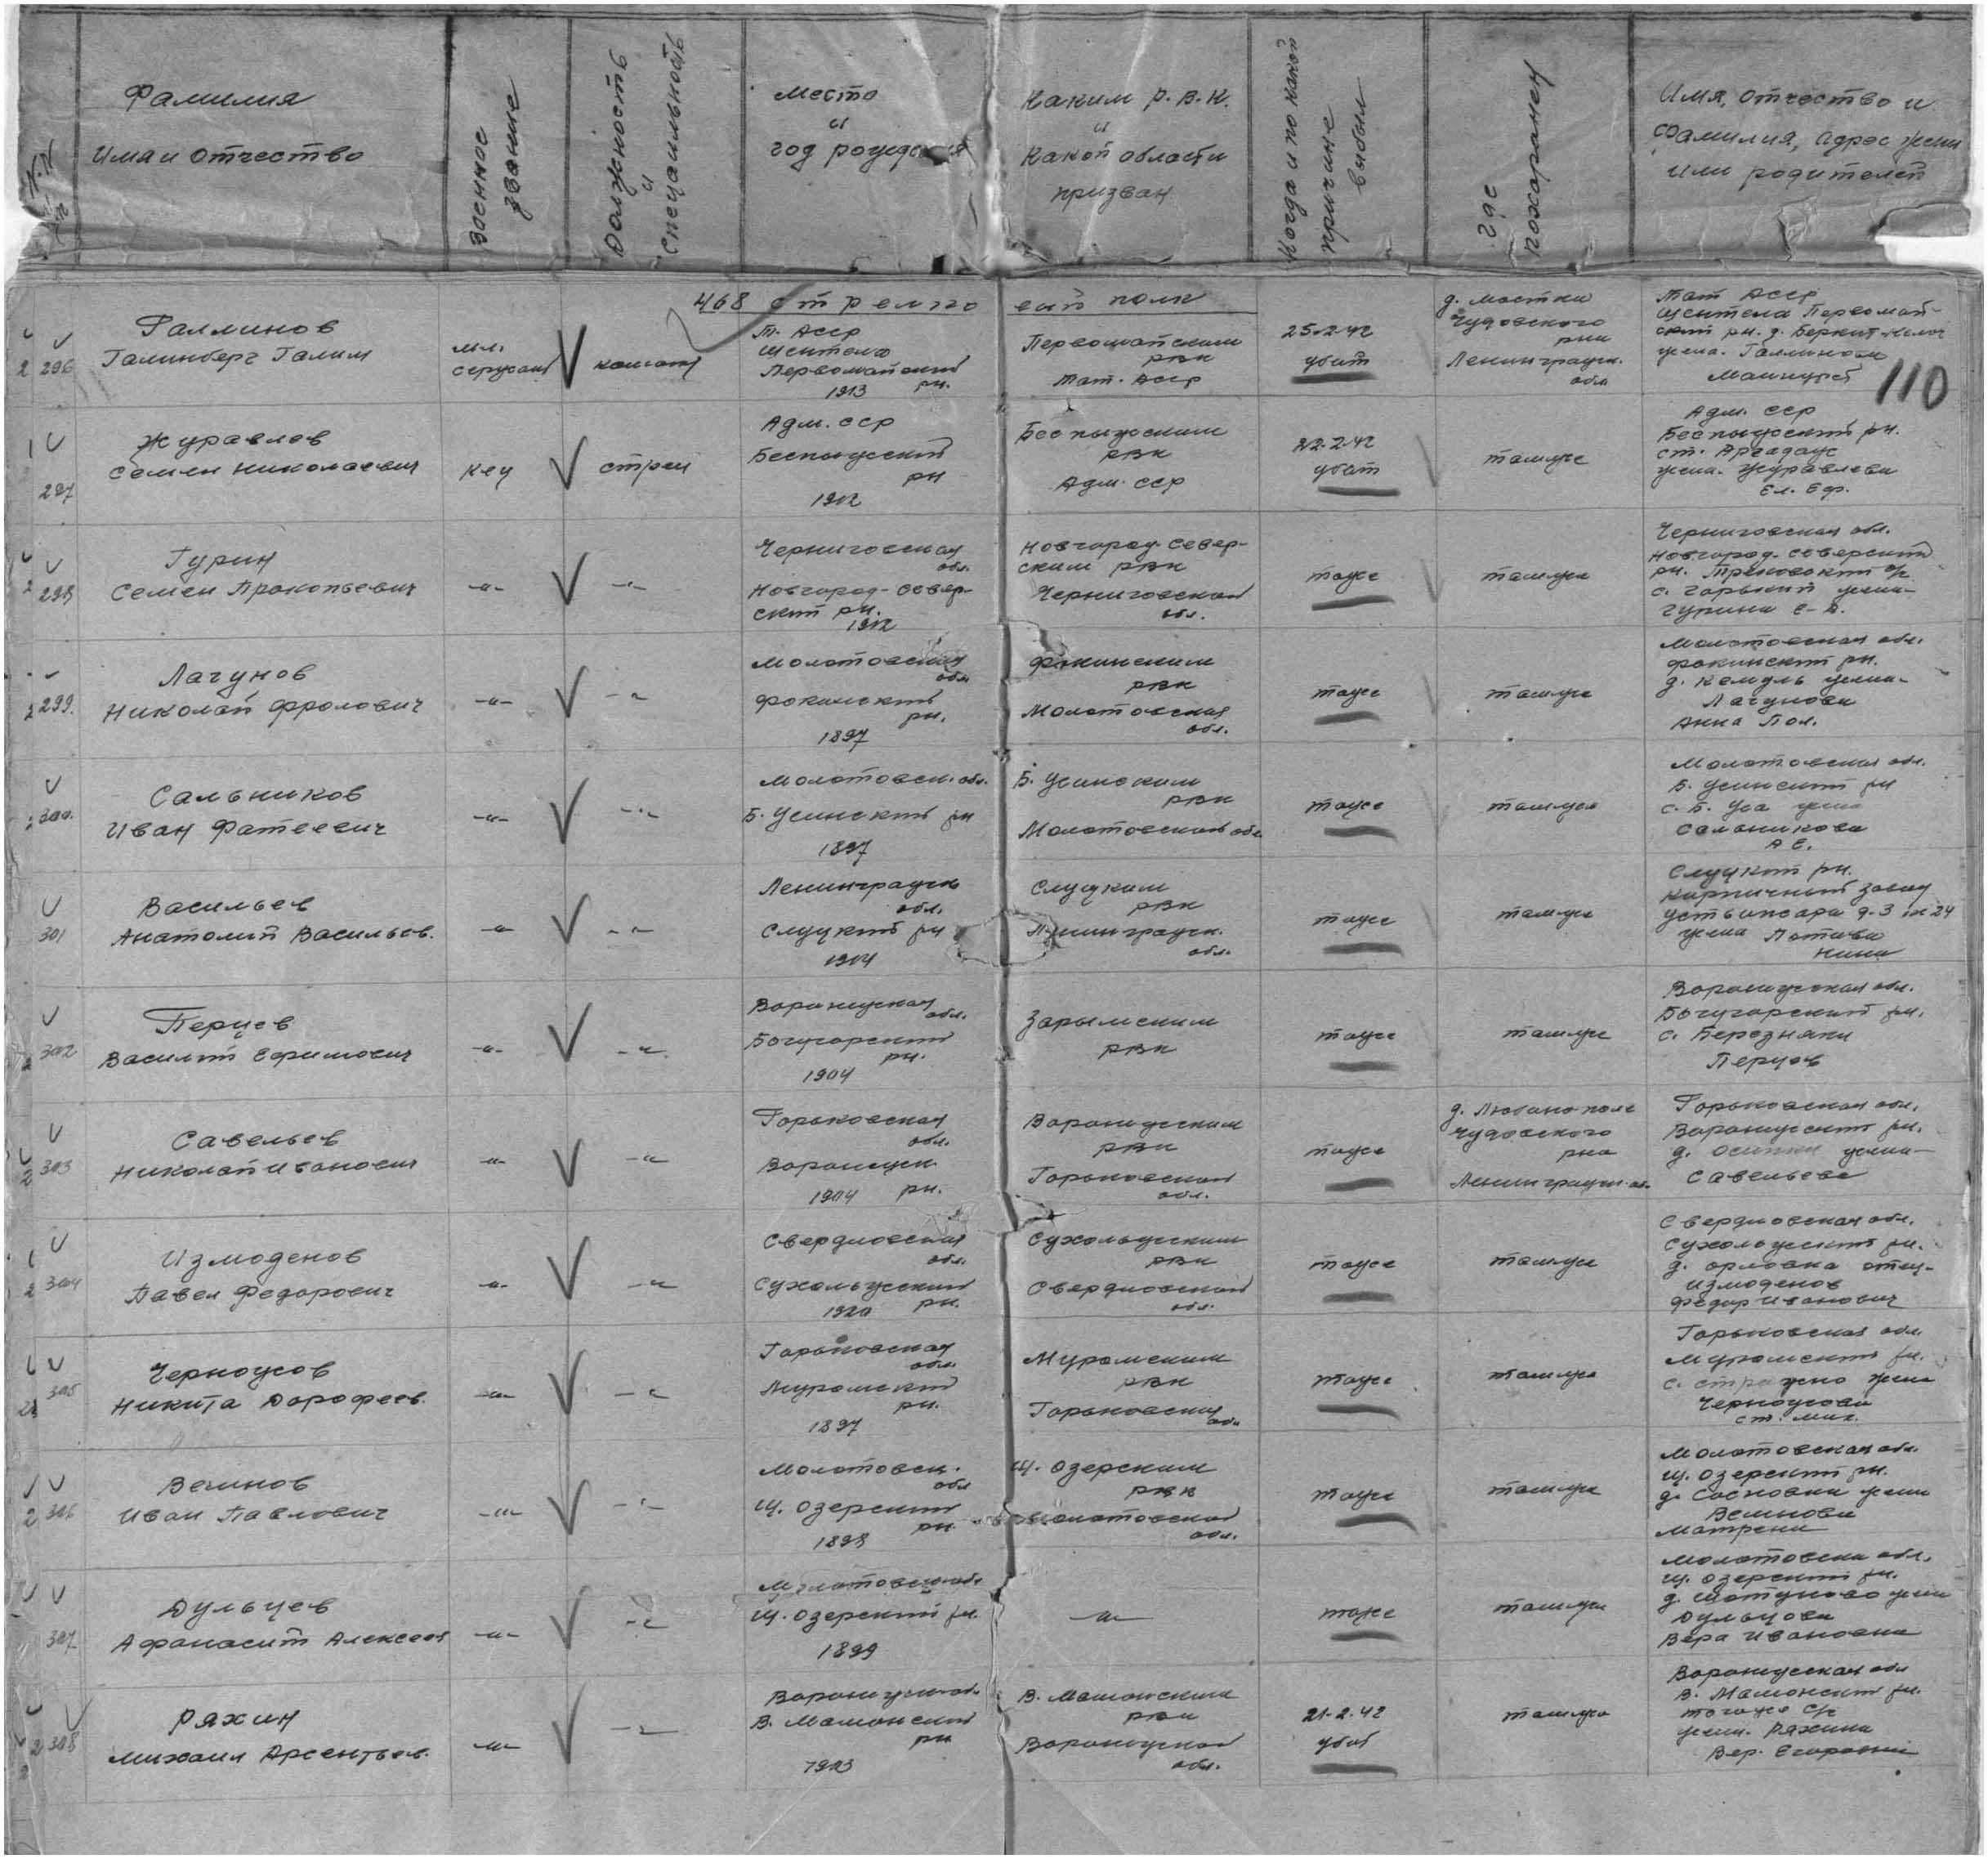 № п.п.
Фамилия
Имя и отчество
Военное звание
Должность и специальность
Место
и
год рождения
Каким Р.В.К.
и
какой области
призван
Когда и по какой причине выбыл
Где похоронен
Имя, отчество и
фамилия, адрес жены
или родителей
468 стрелковый полк
110
296
Галлинов
Галинберг Галим
мл.
сержант
Т. АССР
Первомайский
рн.
1913
Первомайским
РВК
Тат. АССР
25-2-42
убит
д. Мостки
Чудовского
рна
Ленинградск.
обл
Тат АССР
Первомай-
ский рн. д. Беркит
жена. Галлинова
297
Журавлев
Семен Николаевич
кец
стрел
Адм. ССР
рн
1902
РВК
Адм. ССР
22-2-42
убит
тамже
Адм. ССР
рн.
жена. Журавлева
Ел. Еф.
298
Гурин
Семен Прокопьевич
-"-
-"-
Черниговская
обл.
Новгород-север-
ский рн.
1912
Новгород-север-
ским РВК
Черниговская
обл.
тоже
тамже
Черниговская обл.
Новгород-северский
рн.
с. Горький жена-
Гурина
299.
Лагунов
Николай Фролович
-"-
-"-
Молотовская
обл
Фокинский
рн.
1897
Фокинским
РВК
Молотовская
обл.
тоже
тамже
Молотовская обл.
Фокинский рн.
д. Кемуль жена-
Лагунова
Анна Пол.
300.
Сальников
Иван Фатеевич
-"-
-"-
Молотовск. обл.
Б. Усинский рн
1897
Б. Усинским
РВК
Молотовская обл
тоже
тамже
Молотовская обл.
Б. Усинский рн
с. Б. Уса жена
Сальникова
А Е.
301
Васильев
Анатолий Васильев.
-"-
-"-
Ленинградск
обл.
Слуцкий рн
1904
Слуцким
РВК
Ленинградск.
обл.
тоже
тамже
Слуцкий рн.
кирпичный завод
Усть Ижора д-3 кв 24
жена
Нина
302
Перцев
Василий Ефимович
-"-
-"-
Воронежская
обл.
Богучарский
рн.
1904
РВК
тоже
тамже
Воронежская обл.
Богучарский рн.
с. Березняки
Перцов
303
Савельев
Николай Иванович
-"-
-"-
Горьковская
обл.
рн.
1904
РВК
Горьковская
обл.
тоже
д. Любино поле
Чудовского
рна
Ленинградск. об.
Горьковская обл.
рн.
д. жена-
Савельева
304
Измоденов
Павел Федорович
-"-
-"-
Свердловская
обл.
Сухоложский
рн.
1920
Сухоложским
РВК
Свердловская
обл.
тоже
тамже
Свердловская обл.
Сухоложский рн.
д. Орловка отец-
Измоденов
Федор Иванович
305
Черноусов
Никита Дорофеев.
-"-
-"-
Горьковская
обл.
Муромский
рн.
1897
Муромским
РВК
Горьковская
обл
тоже
тамже
Горьковская обл.
Муромский рн.
с. жена
Черноусова
Ст. Мих.
306
Вечинов
Иван Павлович
-"-
-"-
Молотовск.
обл
Щ. Озерский
рн.
1898
Щ. Озерским
РВК
Молотовская
обл.
тоже
тамже
Молотовская обл.
Щ. Озерский рн.
д. Сосновка жена
Матрена
307
Дульцев
Афанасий Алексеев
-"-
-"-
Молотовск обл
Щ. Озерский рн.
1899
-"-
тоже
тамже
Молотовская обл.
Щ. Озерский рн.
д. жена
Дульцова
Вера Ивановна
308
Ряхин
Михаил Арсентьев.
-"-
-"-
Воронежск. об.
В. Мамонский
рн
1903
В. Мамонским
РВК
Воронежская
обл.
21-2-42
убит
тамже
Воронежская обл
В. Мамонский рн.
тогоже С/с
жена. Ряхина
Вер. Егоровна